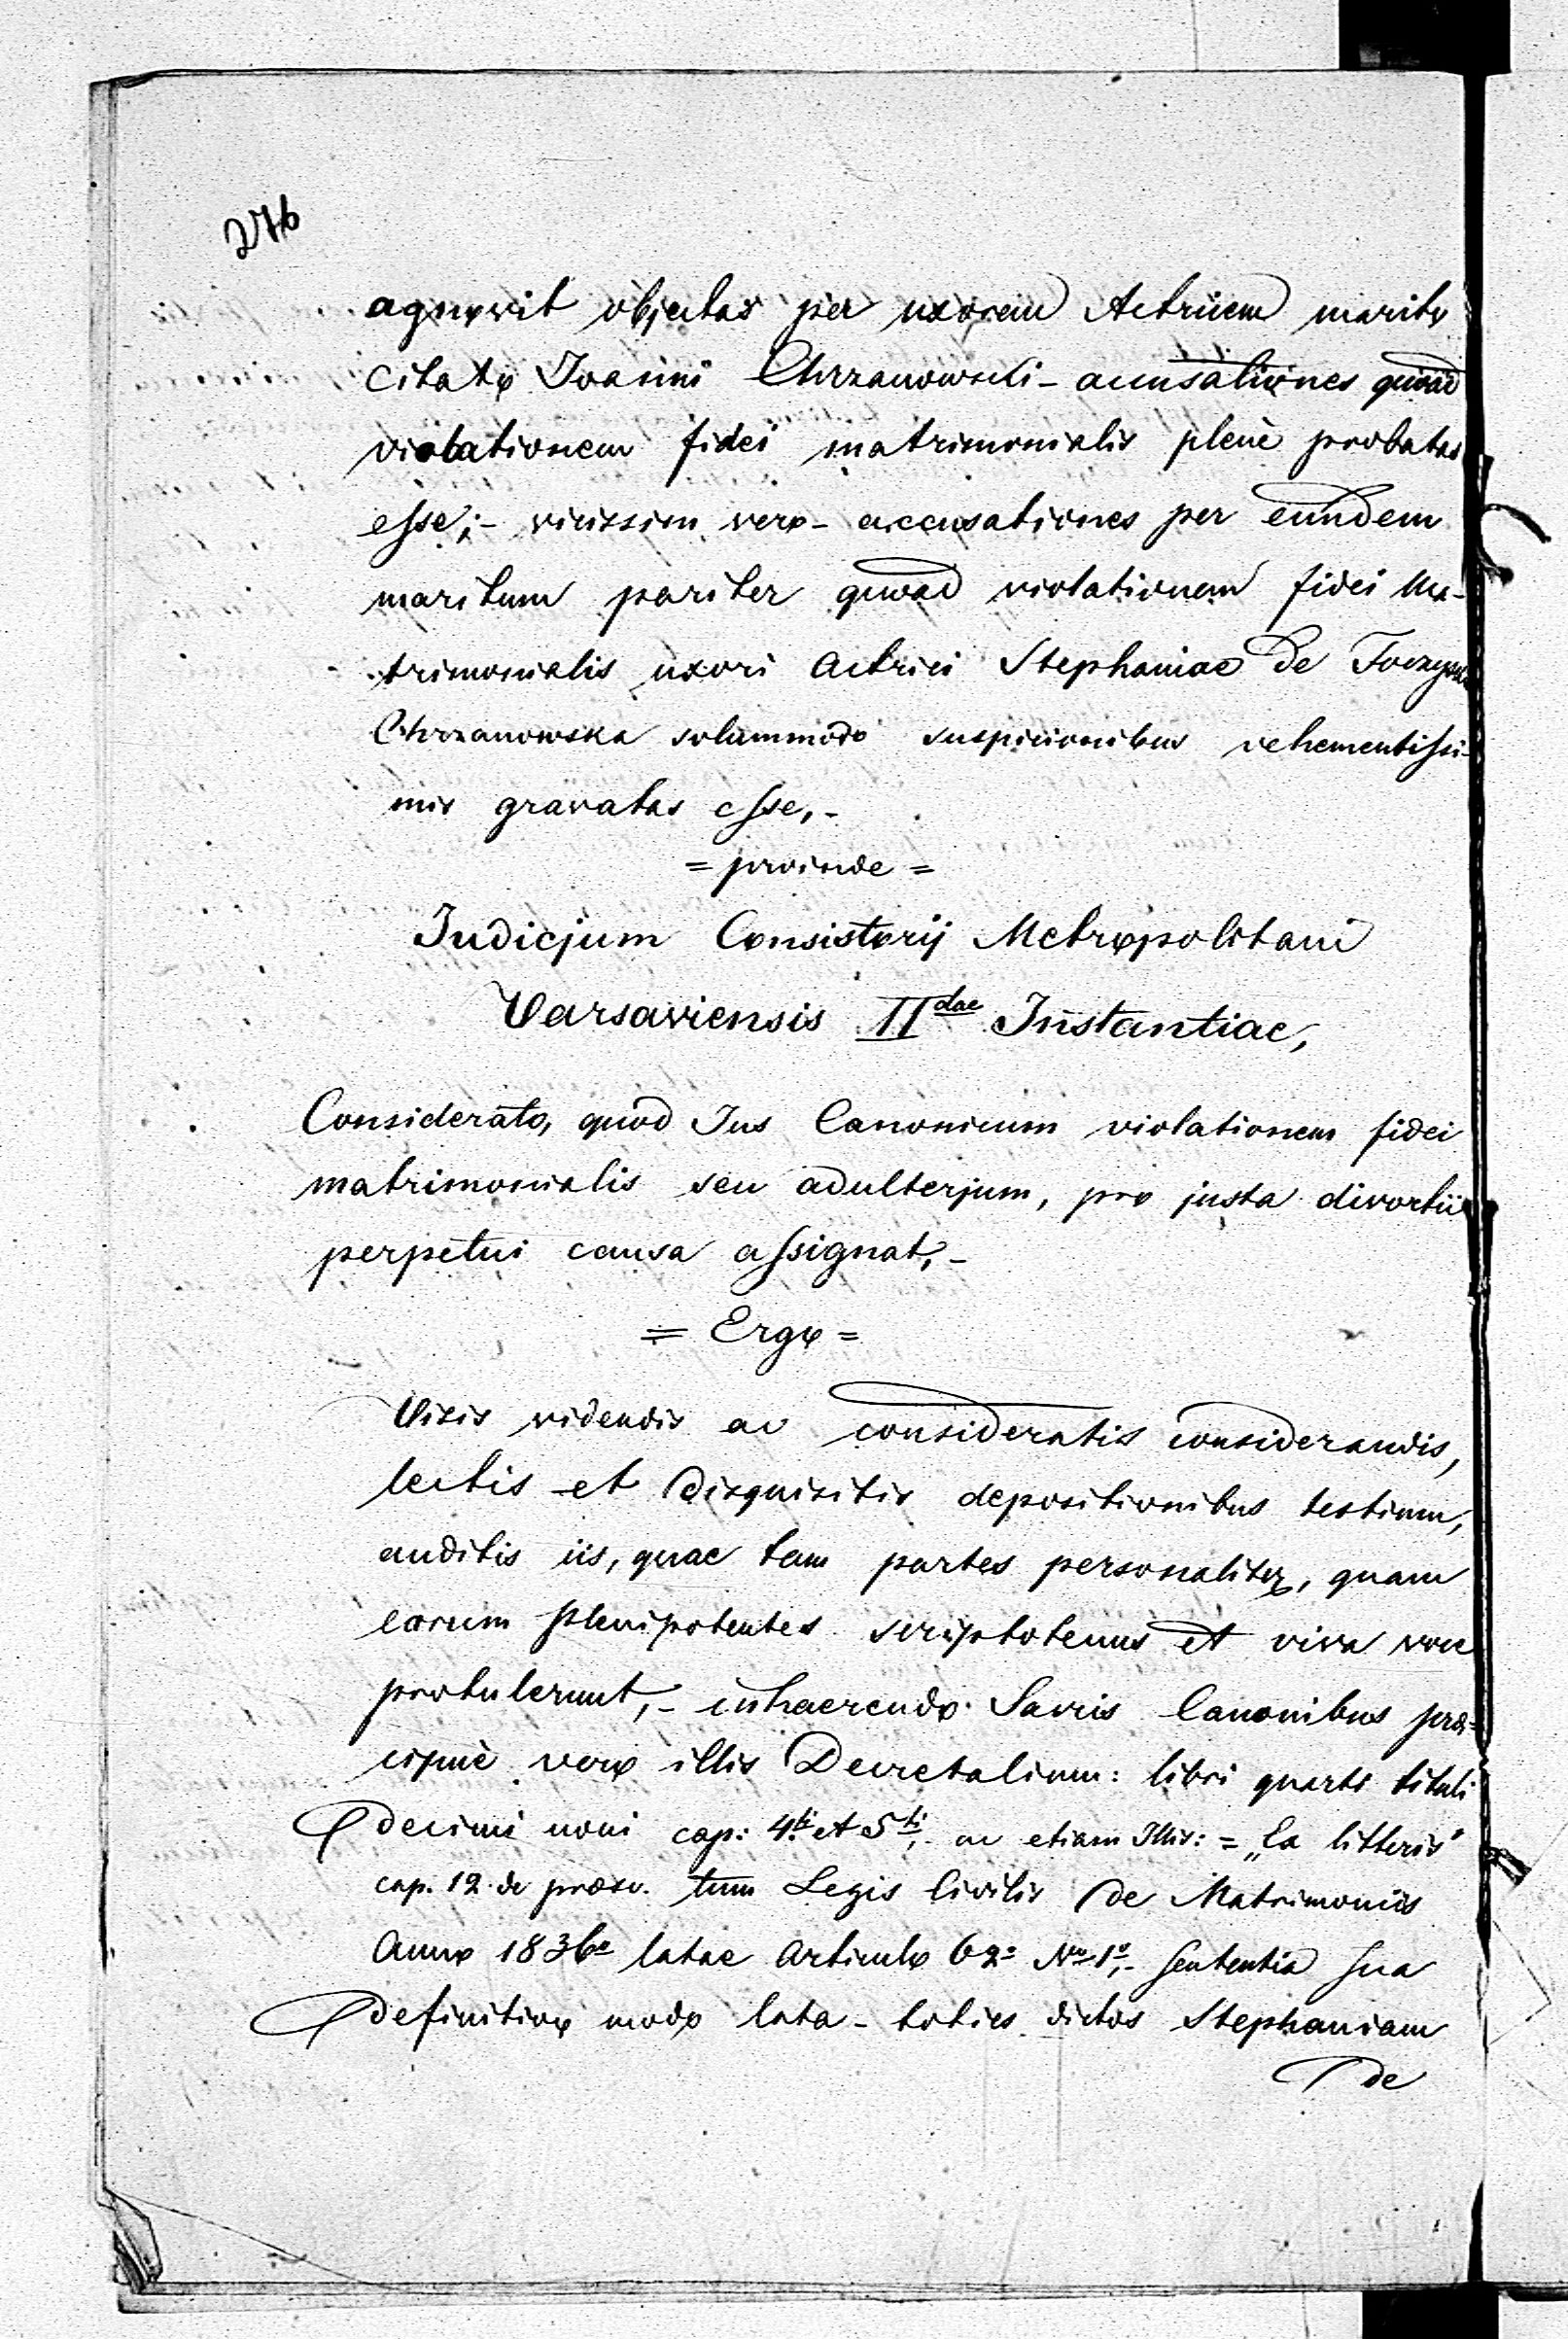 276
agnovit objectas per uxorem Actricem marito
citato Joanni Chrzanowski - accusationes quoad
violationem fidei matrimonialis plenè probatas
esse; - vicissim vero - accusationes per eundem
maritum pariter quoad violationem fidei Ma-
trimonialis uxori Actrici Stephaniae de
Chrzanowska solummodo suspicionibus vehementissi-
mis gravatas esse, -
= proinde =
Judicjum Consistorij Metropolitani
Varsaviensis II dae Instantiae,
Considerato, quod Jus Canonicum violationem fidei
matrimonialis seu adulterjum, pro justa divortii
perpetui causa assignat, -
= Ergo =
Visis videndis ac consideratis considerandis,
lectis et disquisitis depositionibus testium,
auditis iis, quae tam partes personaliter, quam
earum plenipotentes scriptotenus et viva voce
protulerunt, - inhaerendo Sacris Canonibus prae-
cipuè vero illis Decretalium: libri quarti tituli
decimi noni cap: 4ti et 5ti, ac etiam Illis: = „Ea litteris"
cap. 12 de praesc. tum Legis Civilis de Matrimoniis
Anno 1836o latae Articulo 62o No 1o, - Sententia sua
definitivo modo lata - toties dictos Stephaniam
de